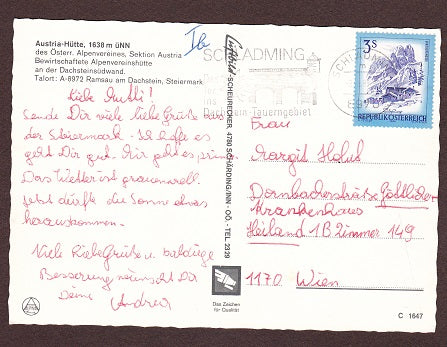 Austria-Hütte, 1638 m üNN
des Österr. Alpenvereines, Sektion Austria
Bewirtschaftete Alpenvereinshütte
an der Dachsteinsüdwand.
Talort: A-8972 Ramsau am Dachstein, Steiermark
Liebe Mutti!
Sende Dir viele liebe Grüße aus
der Steiermark - Ich hoffe es
geht Dir gut. Mir geht es prima
Das Wetter ist grauenvoll
jetzt dürfte die Sonne etwas
herauskommen.
Viele liebe Grüße u. baldige
Besserung wünscht Dir
Deine Andrea
SCHLADMING
Dachstein-Tauerngebiet
SCHEURECKER, 4780 SCHÄRDING/INN - OÖ. - TEL. 2329
3 S
REPUBLIK ÖSTERREICH
Frau
Margit Holub
Dornbacherstraße Göttlicher
Krankenhaus
Heiland 1B Zimmer 149
1170 Wien
Das Zeichen
für Qualität
C 1647